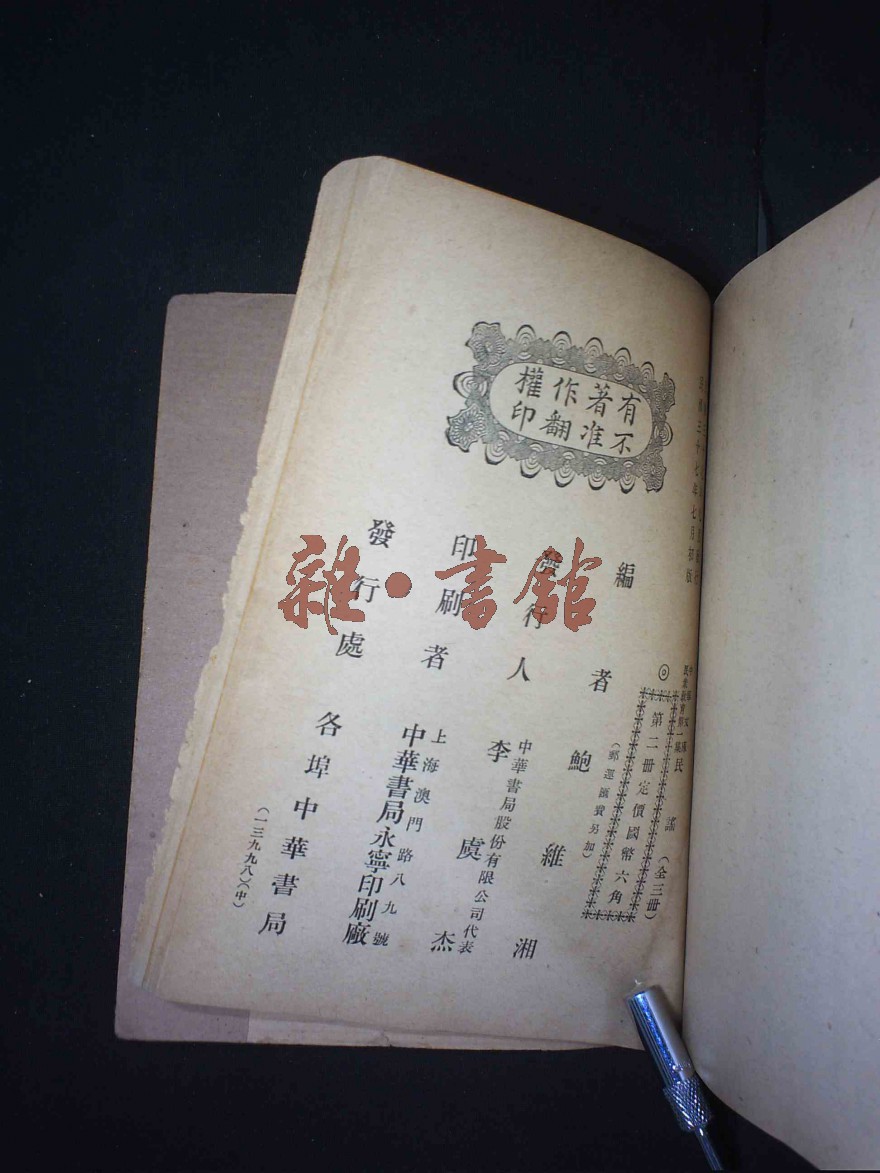 三十七年七月初版
民衆教育第一集
民謠(全三冊)
◎
第二冊定價國幣六角
(郵運匯費另加)
有著作權
不准翻印
編者 鮑維湘
發行人 李虞杰
中華書局股份有限公司代表
印刷者
上海澳門路八九號
中華書局永寧印刷廠
發行處 各埠中華書局
(一三九九八)(中)
雜·書館